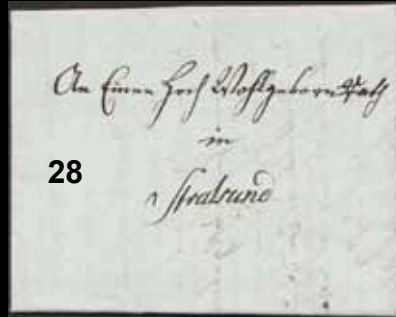 An Einen Hoch Wohlgebornen Rath
in
28
Stralsund